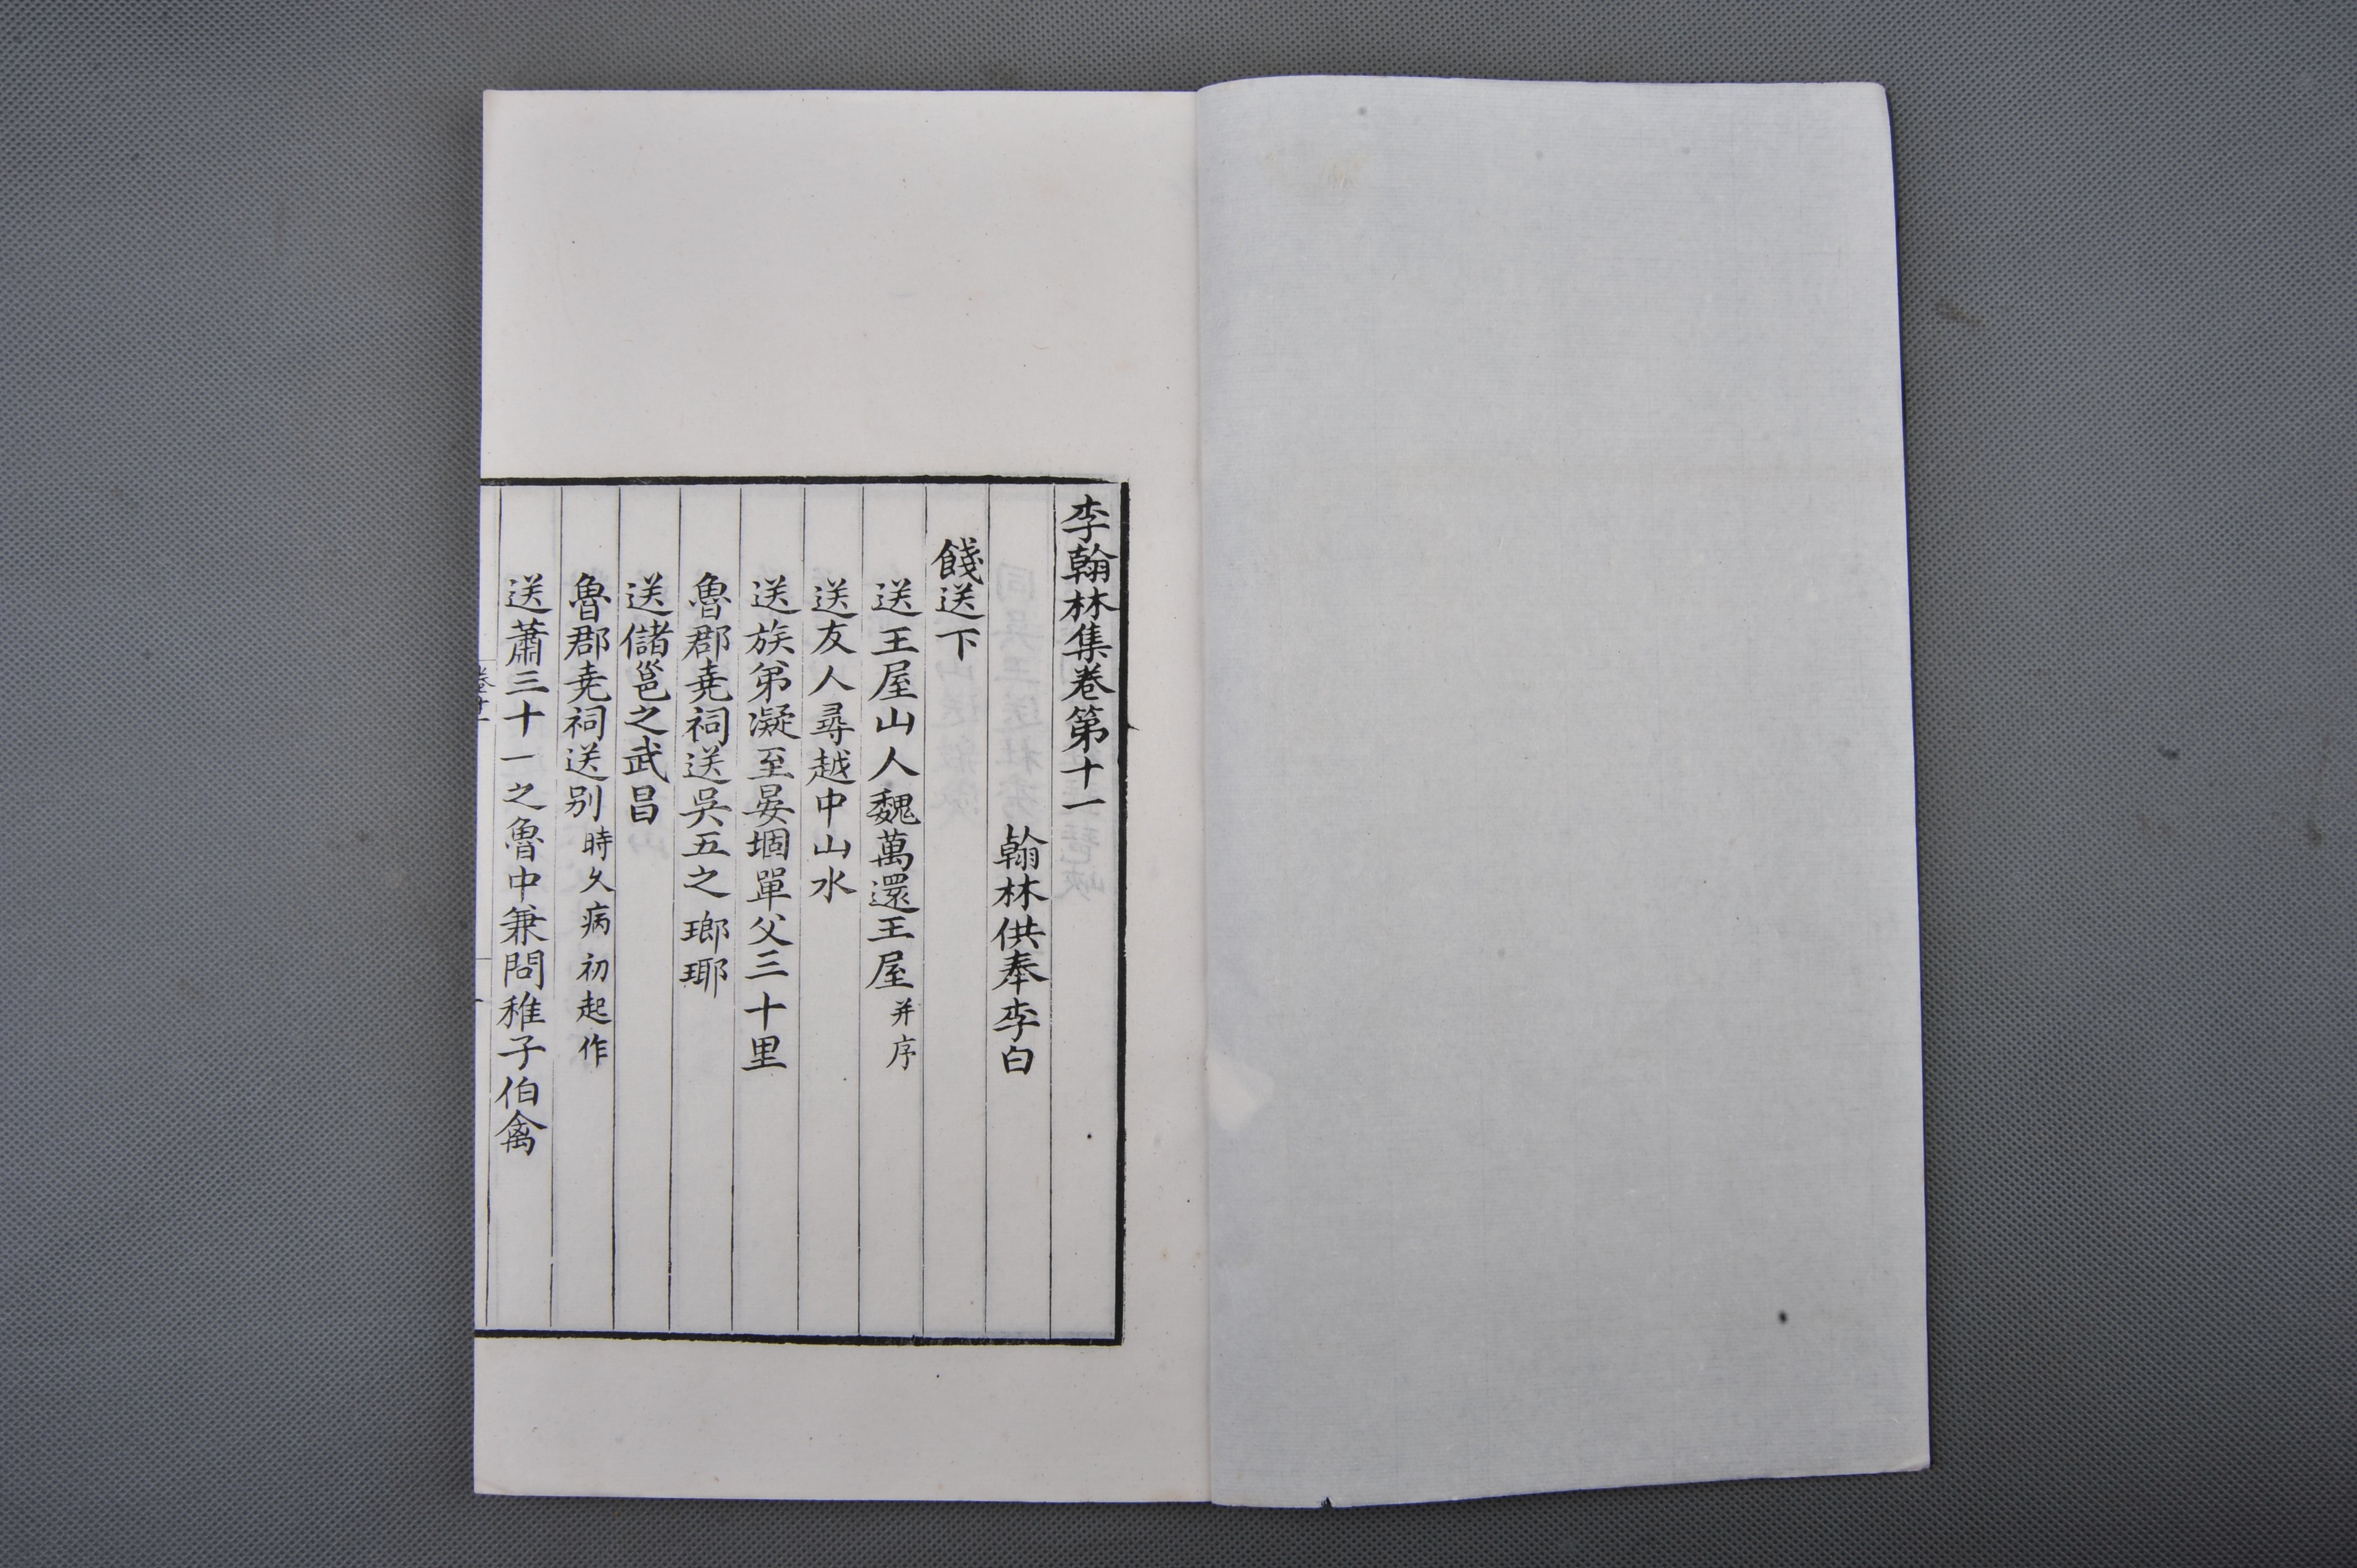 李翰林集卷第十一
翰林供奉李白
餞送下
送王屋山人魏萬還王屋并序
送友人尋越中山水
送族弟凝至晏堌單父三十里
魯郡尭祠送吳五之瑯琊
送儲邕之武昌
魯郡尭祠送别時久病初起作
送蕭三十一之魯中兼問稚子伯禽